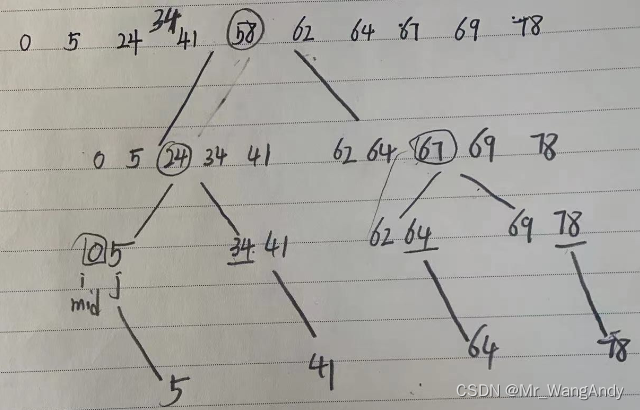 0 5 24 34 41 58 62 64 67 69 78
0 5 24 34 41 62 64 67 69 78
0 5 34 41 62 64 69 78
i j
mid
5 41 64 78
CSDN @Mr_WangAndy